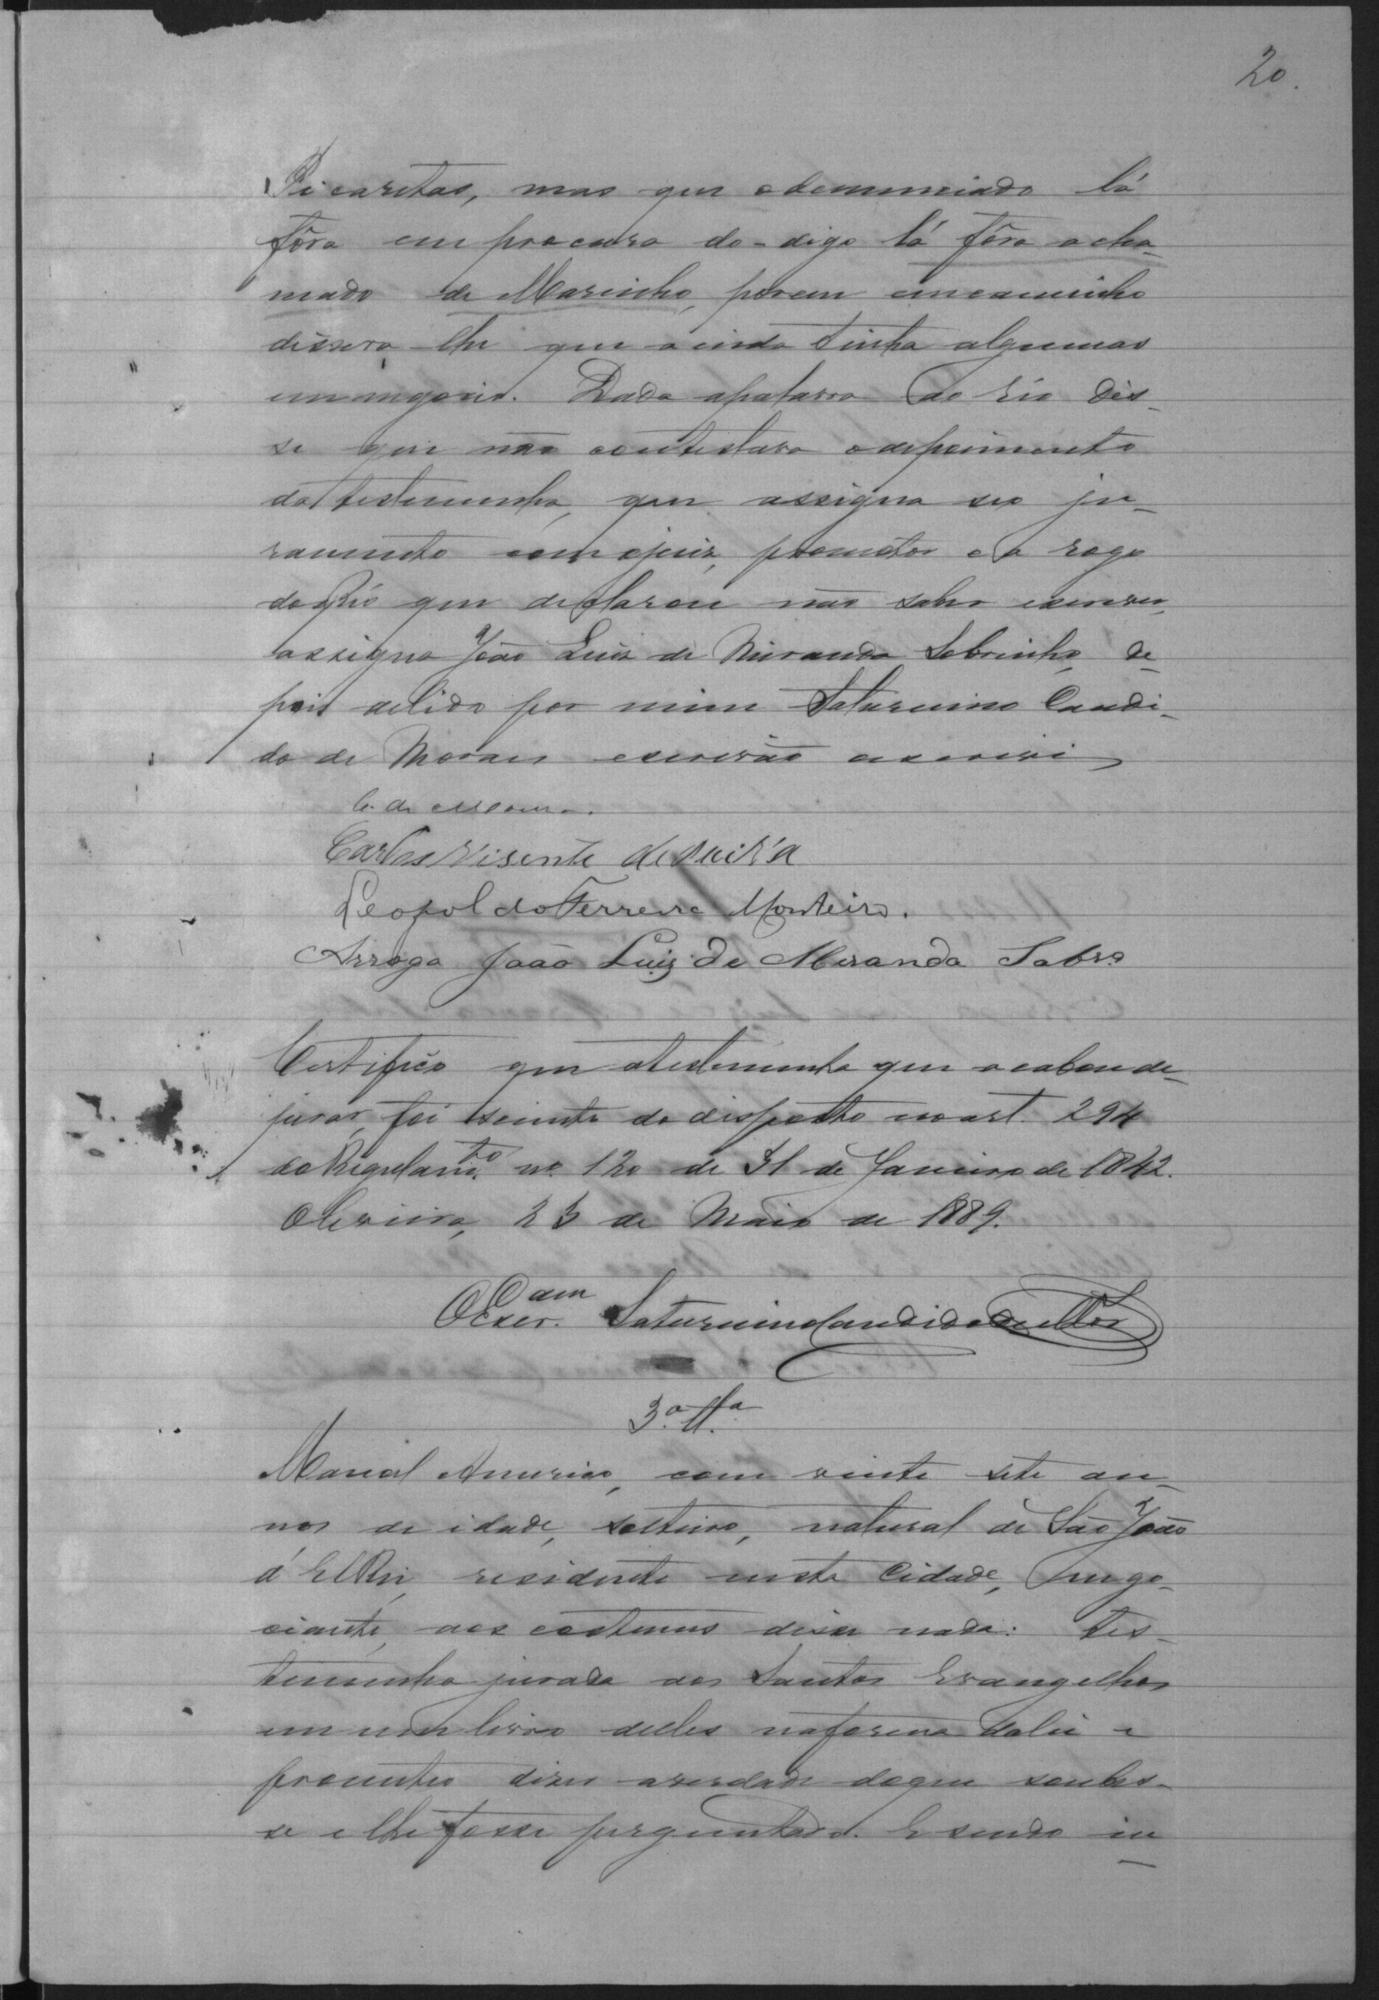 20.
Picaretas, mas que o denunciado lá
fôra em procura do - digo lá fôra a cha-
mado de Marinho, porem em caminho
dissera lhe que ainda tinha algumas
em negocio. Dada apalavra ao réo dis-
se que não contestava o depoimento
da testemunha, que assigna seo ju-
ramento com ojuiz, promotor e a rogo
do Réo que declarou não saber escrever,
assigna João Luiz de Miranda Sobrinho, de
pois de lido por mim Saturnino Candi-
do de Moraes escrivão escrevi
Carlos Visente de
Leopoldo Ferreira Monteiro.
Arrogo João Luiz de Miranda Sobro
Certifico que atestemunha que acabou de-
jurar, foi sciente do disposto no art. 294
do Regulamto. no. 120 de 31 de Janeiro de 1842.
Oliveira, 23 de Maio de 1889.
O Escr. Saturnino Candido de Mor
3.a Ta.
Marcal Americo, com vinte sete an-
nos de idade, solteiro, natural de São João
d'El Rei, residente nesta Cidade, nego-
ciante, aos costumes disse nada: tes-
temunha jurada aos Santos Evangelhos
em um livro delles na forma da lei e
prometteo dizer averdade doque soubes-
se e lhe fosse perguntado. E sendo in